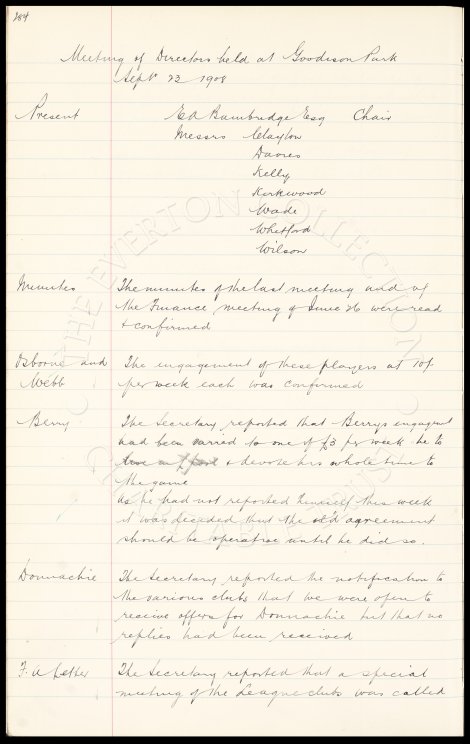 284
Meeting of Directors held at Goodison Park
Sept 22 1908
Present E A Bainbridge Esq Chair
Messrs Clayton
Davies
Kelly
Kirkwood
Wade
Whitford
Wilson
Minutes The minutes of the last meeting and of
the Finance meeting of June 26 were read
& confirmed
Osborne and The engagement of these players at 10/-
Webb per week each was confirmed
Berry The Secretary reported that Berrys engagement
had been varied to one of £3 per week he to
& devote his whole time to
the game
as he had not reported himself this week
it was decided that the old agreement
should be operative until he did so.
Donnachie The Secretary reported the notification to
the various clubs that we were open to
receive offers for Donnachie but that no
replies had been received
F. A Letter The Secretary reported that a special
meeting of the League clubs was called
THE EVERTON COLLECTION